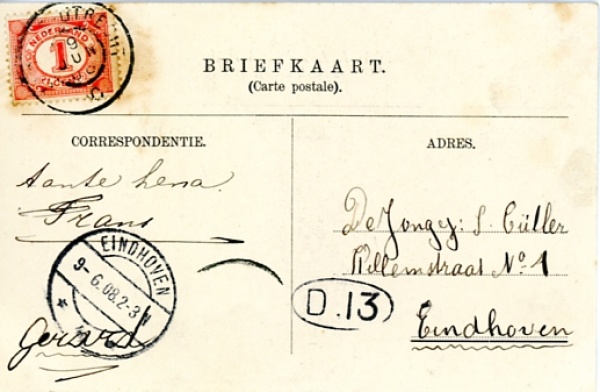 UTRECHT
NEDERLAND
1
BRIEFKAART.
(Carte postale).
CORRESPONDENTIE.
Tante
Frans
EINDHOVEN
9-6.08.2-3N
Gerard
ADRES.
De Jongej: S. Cüller
Willemstraat No. 1
D.13
Eindhoven